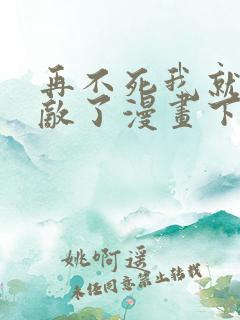 再不死我就
敵了漫畫下
姚啊遥
未经同意禁止转载